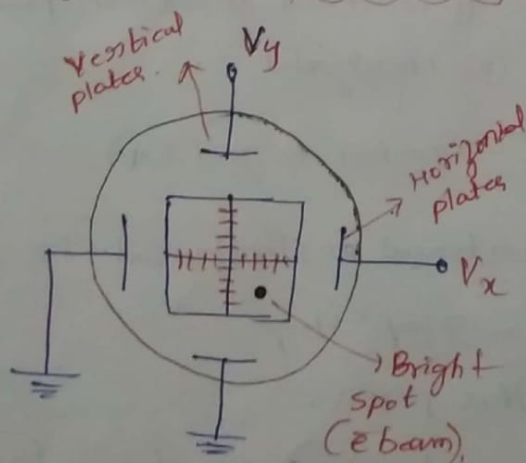 Vertical
plates.
Vy
Horizontal
plates
Vx
Bright
spot
(ē beam)